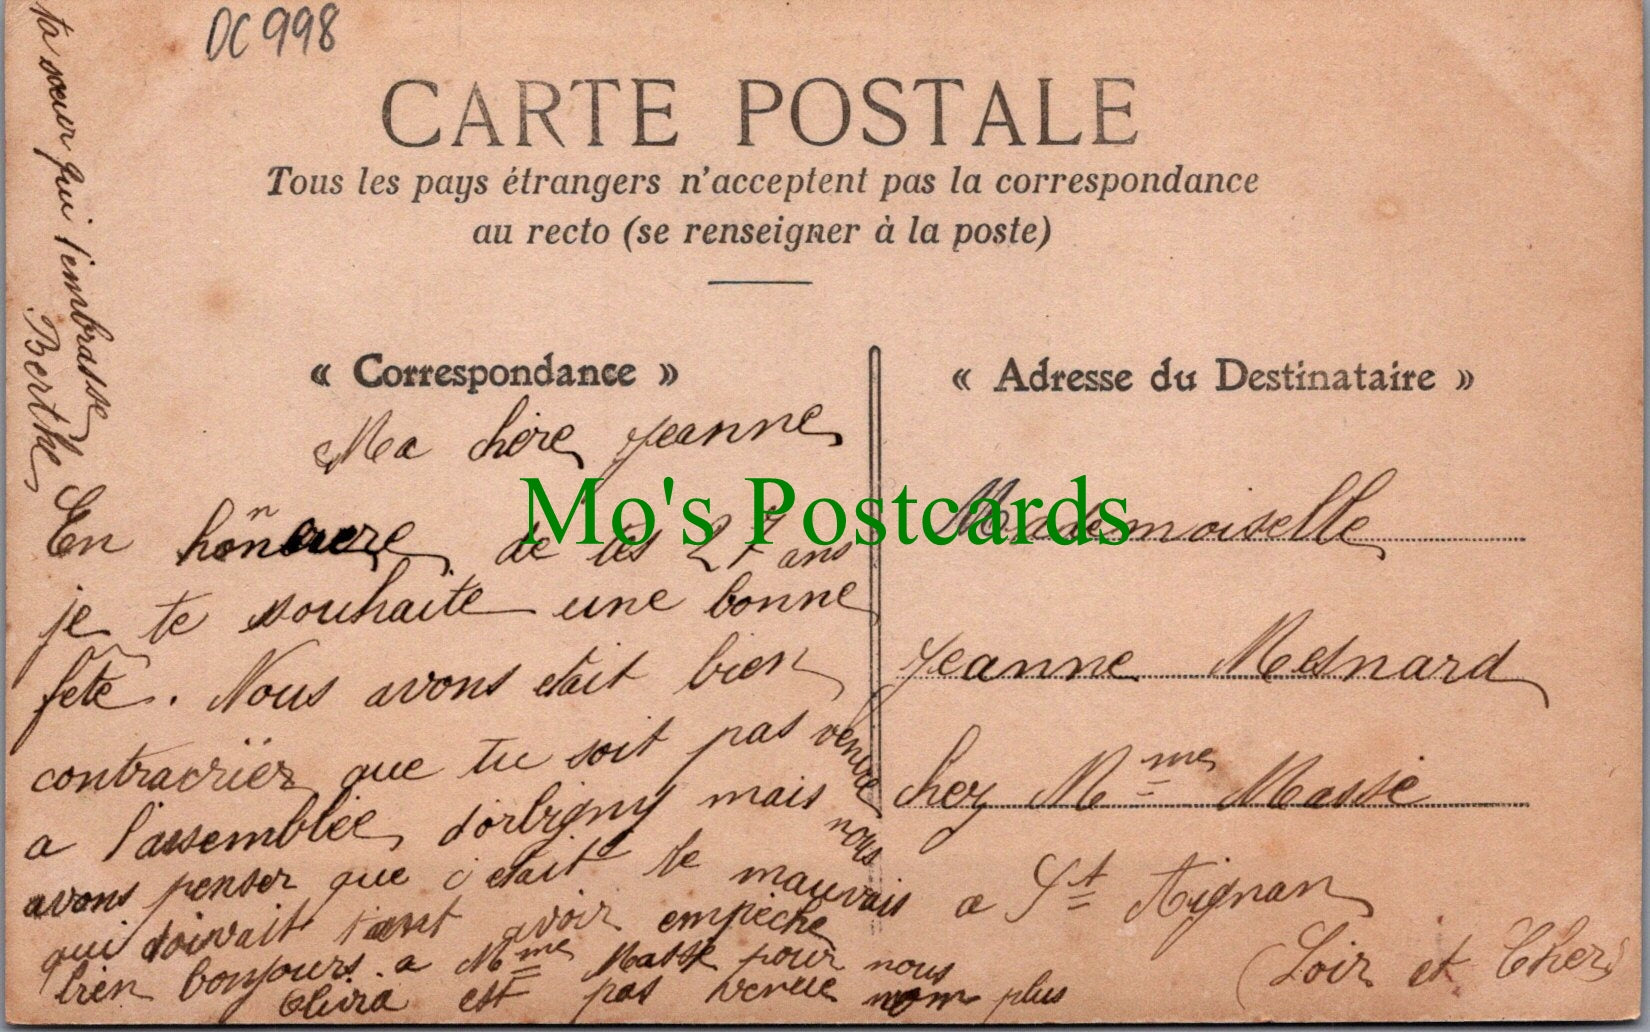 DC 998
CARTE POSTALE
Tous les pays étrangers n'acceptent pas la correspondance
au recto (se renseigner à la poste)
« Correspondance »
Ma chère Jeanne
En honneure de tes 27 ans
je te souhaite une bonne
fête. Nous avons etait bien
contrarrïer que tu soit pas venue
a l'assemblée d'orbigny mais nous
avons penser que c'etait le mauvais
qui doivait t'avoir empèche
bien bonjours a Mme Masse pour nous
est pas venue non plus
ta sœur qui t'embrasse
Berthe
« Adresse du Destinataire »
Mademoiselle
Jeanne Mesnard
chez Mme Massé
a St Aignan
(Loir et Cher)
Mo's Postcards